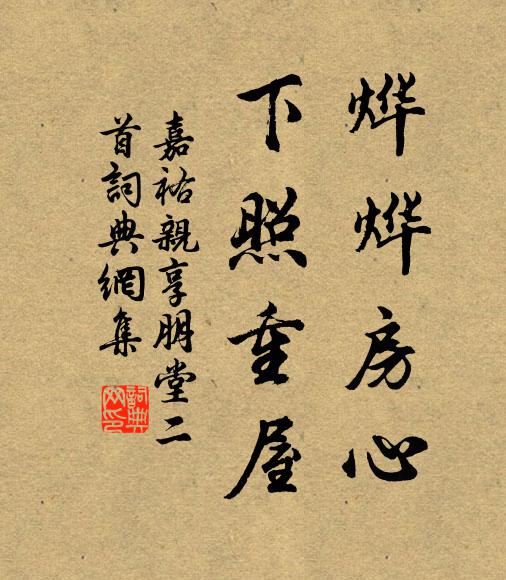 烨烨房心
下照重屋
嘉祐親享明堂二
首詞典網集
詞典
网印